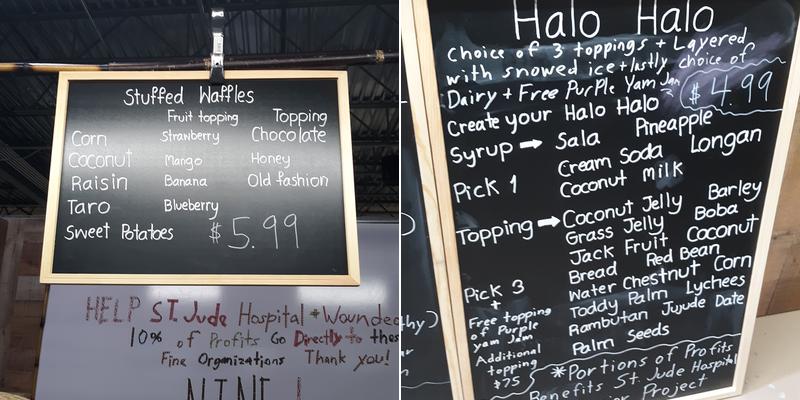 Stuffed Waffles
Fruit topping Topping
Corn Strawberry Chocolate
Coconut Mango Honey
Raisin Banana Old fashion
Taro Blueberry
Sweet Potatoes $5.99
HELP ST. Jude Hospital + Wounded
10% of Profits Go Directly to these
Fine Organizations Thank you!
Halo Halo
Choice of 3 toppings + Layered
with snowed ice + lastly choice of
Dairy + Free Purple Yam Jam
$4.99
Create your Halo Halo
Syrup → Sala Pineapple
Cream Soda Longan
Pick 1 Coconut Milk
Topping → Coconut Jelly Barley
Grass Jelly Boba
Jack Fruit Coconut
Bread Red Bean
Pick 3 Water Chestnut Corn
+ Toddy Palm Lychees
Free topping Rambutan Jujude Date
of Purple Palm Seeds
yam Jam
Additional
topping
$75
*Portions of Profits
Benefits St. Jude Hospital
Project